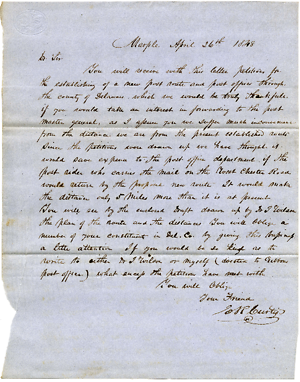 Marple, April 26th 1848
D Sir
You will receive with this letter petitions for
the establishing of a new post route and post offices through
the county of Delaware which we would be very thankful
if you would take an interest in forwarding to the post
master general, as I assure you we suffer much inconvenience
from the distance we are from the present established routes
Since the petitions were drawn up we have thought it
would save expense to the post office department if the
post rider who carries the mail on the West Chester Road
would return by the propose new route. It would make
the distance only 5 Miles more than it is at present
You will see by the enclosed Draft drawn up by
the plan of the route and the distances You will oblige a
number of your constituents in Del. Co by giving this
a little attention If you would be so kind as to
write to either or myself (directed to
post office) what success the petition have met with
You will Oblige
Your Friend